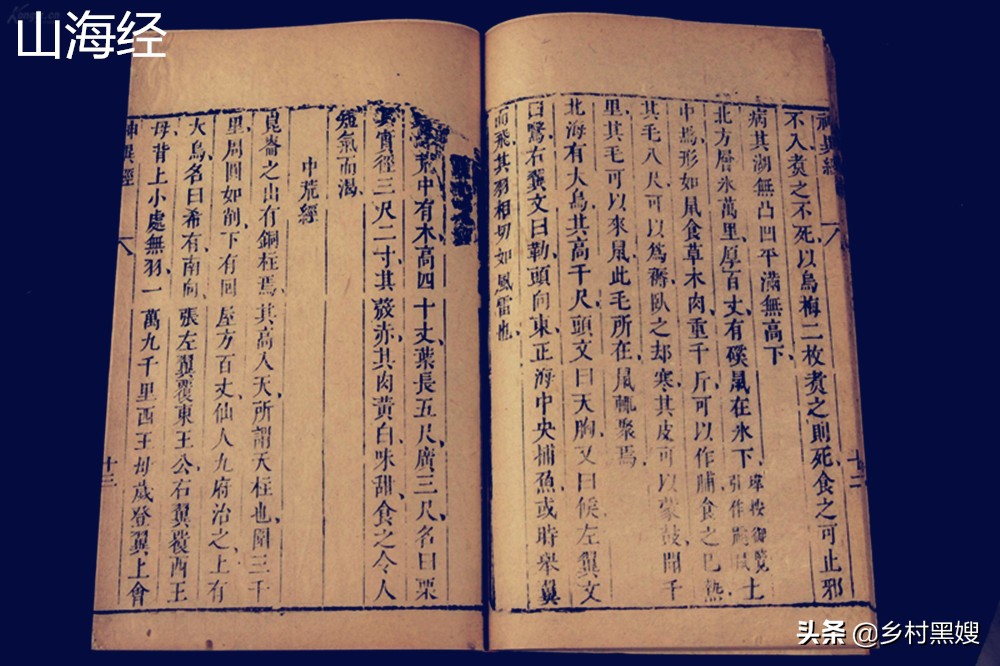 山海经
神異經 十二
不入煮之不死以烏梅二枚煮之則死食之可止邪
病其湖無凸凹平滿無高下
北方層氷萬里厚百丈有磎鼠在氷下 璋按御覽引作鼷鼠 土
中焉形如鼠食草木肉重千斤可以作脯食之已熱
其毛八尺可以爲褥臥之却寒其皮可以蒙鼓聞千
里其毛可以來鼠此毛所在鼠輒聚焉
北海有大鳥其高千尺頭文曰天胸又曰候左翼文
曰鷖右翼文曰勒頭向東正海中央捕魚或時舉翼
而飛其羽相切如風雷也
荒中有木高四十丈葉長五尺廣三尺名曰栗
其實徑三尺二寸其殼赤其肉黃白味甜食之令人
短氣而渴
中荒經
崑崙之山有銅柱焉其高入天所謂天柱也圍三千
里周圓如削下有回屋方百丈仙人九府治之上有
大鳥名曰希有南向張左翼覆東王公右翼覆西王
母背上小處無羽一萬九千里西王母歲登翼上會
神異經 十三
头条 @乡村黑嫂